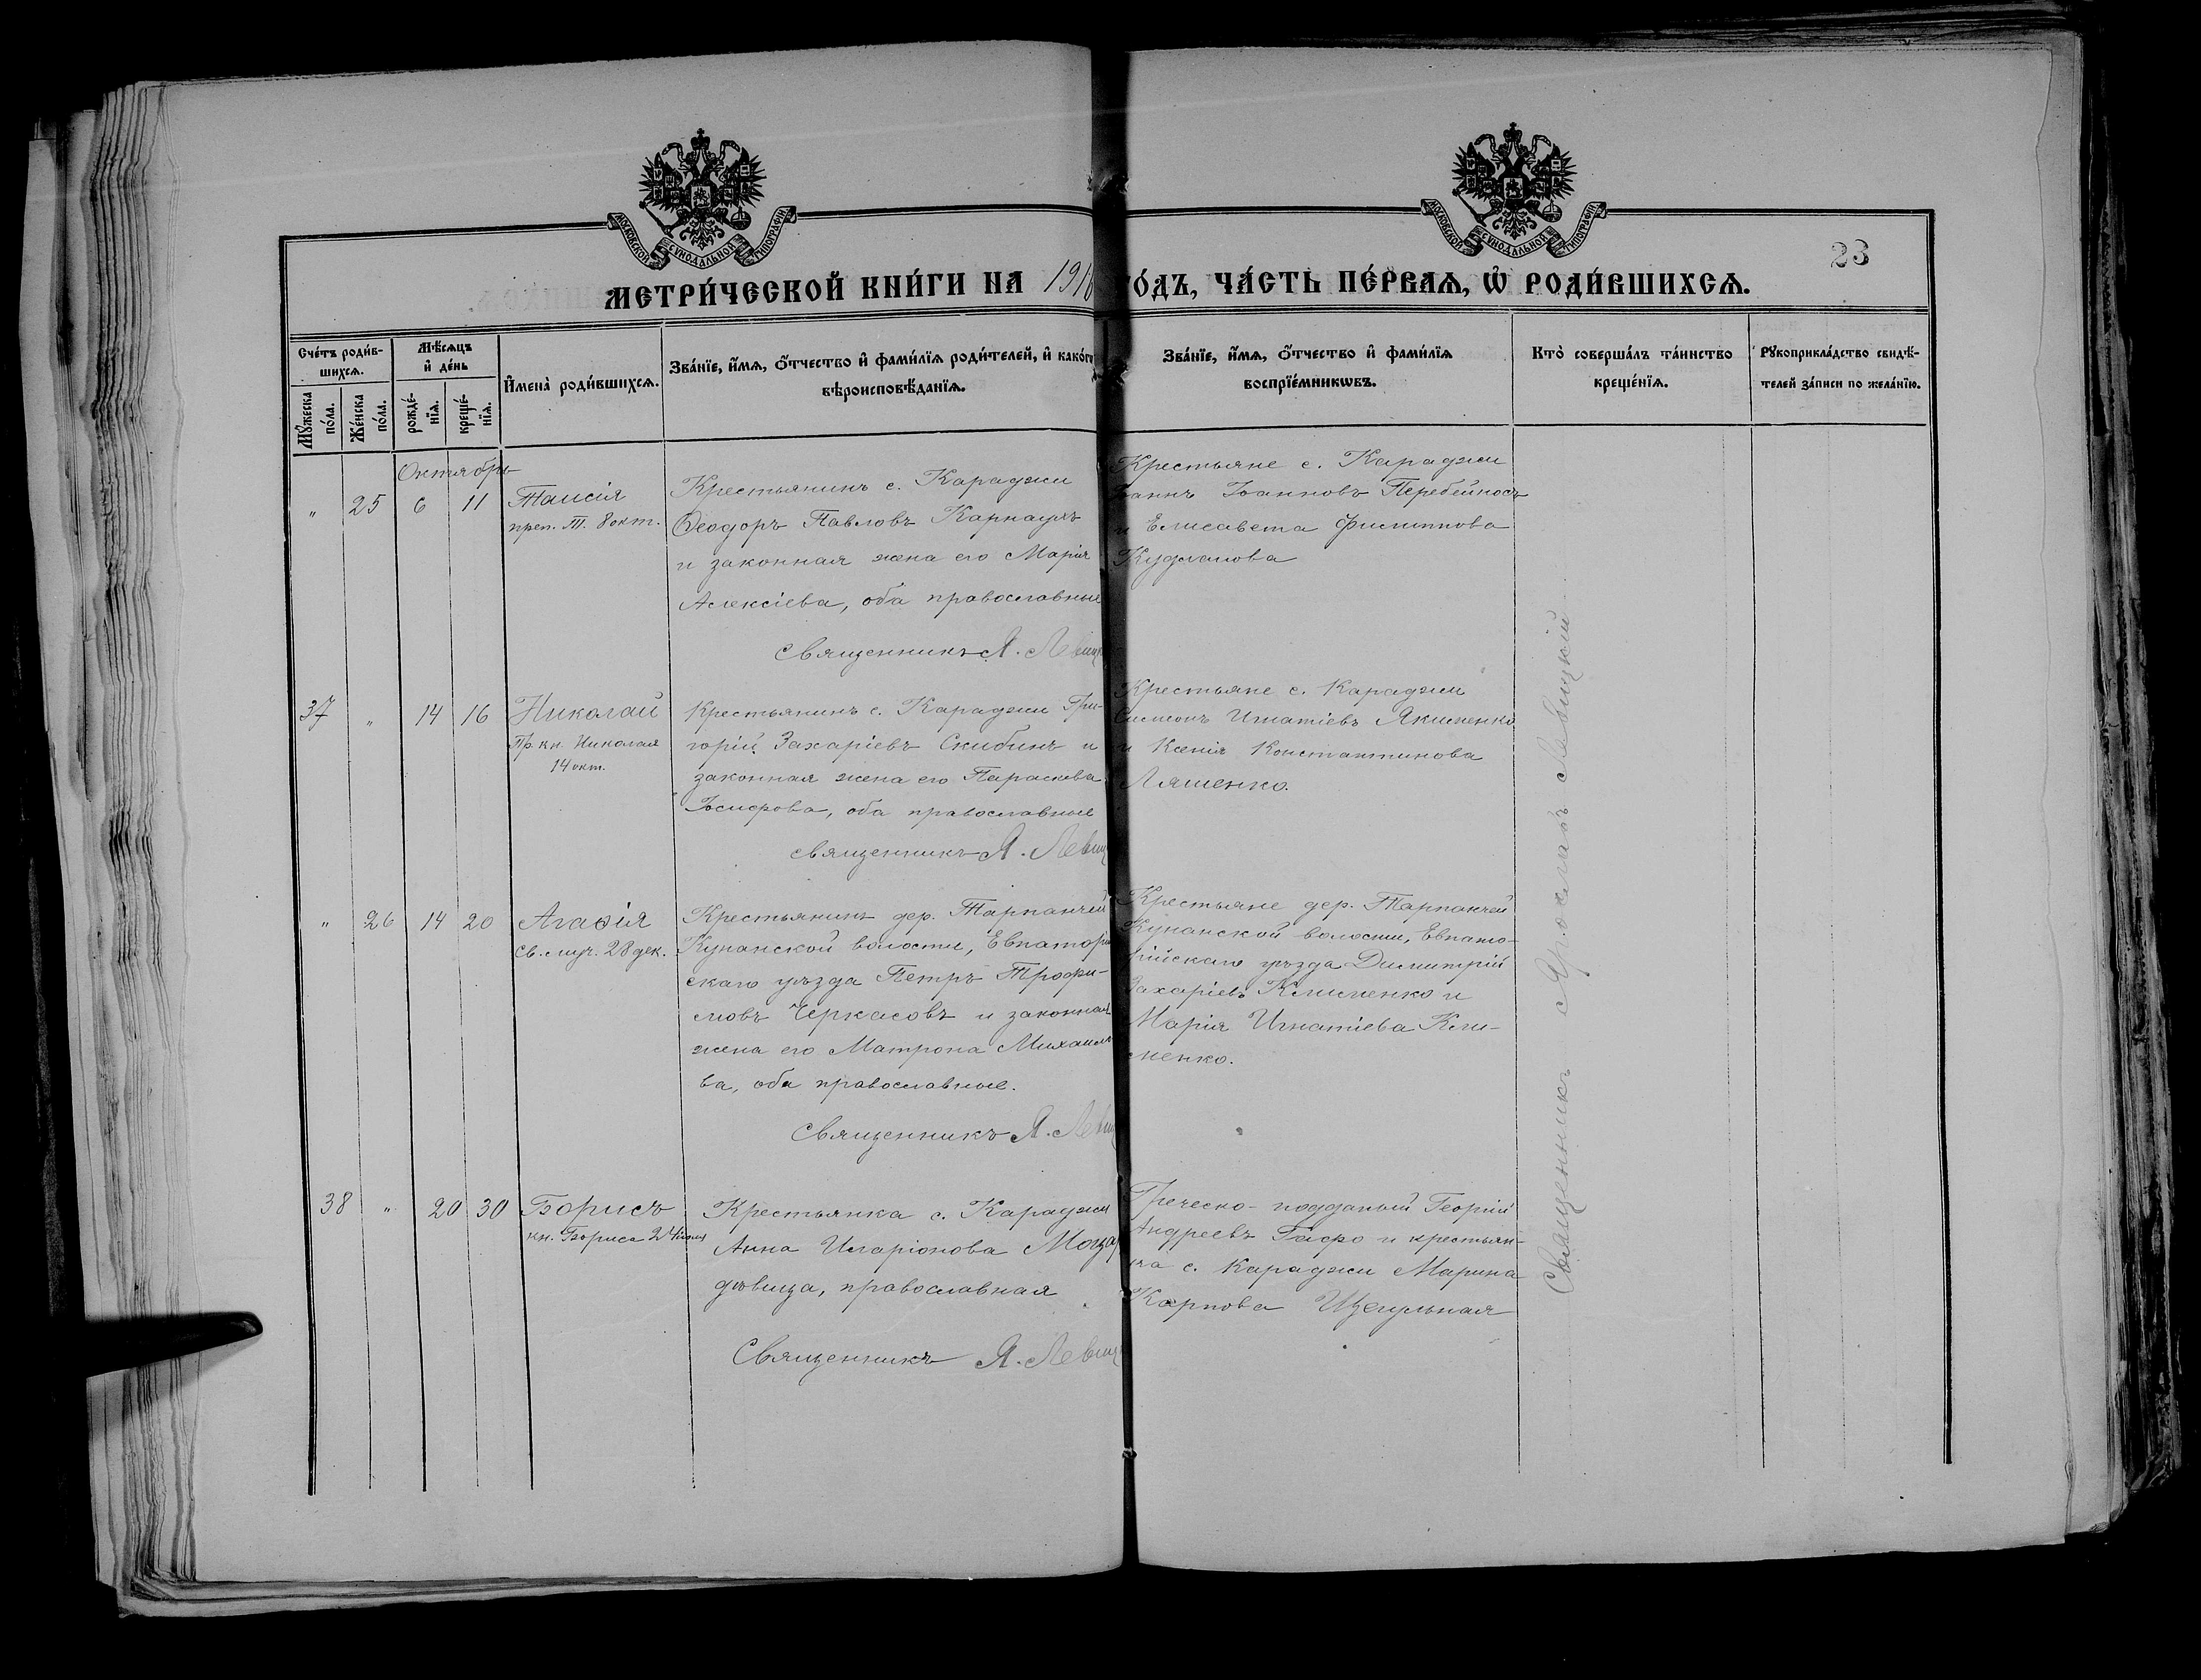 МОСКОВСКОЙ СѴНОДАЛЬНОЙ ТИПОГРАФІИ
МОСКОВСКОЙ СѴНОДАЛЬНОЙ ТИПОГРАФІИ
23
МЕТРИ́ЧЕСКОЙ КНИ́ГИ НА 191 ГО́ДЪ, ЧА́СТЬ ПЕ́РВАѦ, Ѿ РОДИ́ВШИХСѦ.
Сче́тъ роди́в-
шихсѧ.
Мꙋ́жеска
по́ла.
Же́нска
по́ла.
Мѣ́сѧцъ
и҆ де́нь
рожде́-
нїѧ.
креще́-
нїѧ.
И҆мена̀ роди́вшихсѧ.
Зва́нїе, и҆́мѧ, ѻ҆́тчество и҆ фами́лїѧ роди́телей, и҆ како́гѡ
вѣроисповѣ́данїѧ.
Зва́нїе, и҆́мѧ, ѻ҆́тчество и҆ фами́лїѧ
воспрїе́мникѡвъ.
Кто̀ соверша́лъ та́инство
креще́нїѧ.
Рꙋкоприкла́дство свидѣ́-
телей за́писи по жела́нїю.
Октябрь
" 25 6 11 Таисія
преп. Т. 8 окт.
Крестьянинъ с. Караджи
Ѳеодоръ Павловъ Карнаухъ
и законная жена его Марія
Алексіева, оба православные
Священникъ Я. Левиц
Крестьяне с. Караджи
Іоаннъ Іоанновъ Перебейносъ
и Елисавета Филиппова
37 " 14 16 Николай
Пр. кн. Николая
14 окт.
Крестьянинъ с. Караджи Гри-
горій Захаріевъ Скибинъ и
законная жена его Параскева
Іосифова, оба православные
священникъ Я. Левиц
Крестьяне с. Караджи
Симеонъ Игнатіевъ Якименко
и Ксенія Константинова
Ляшенко.
" 26 14 20 Агаѳія
св. муч. 28 дек.
Крестьянинъ дер. Тарпанчей
Кунанской волости, Евпаторій
скаго уѣзда Петръ Трофи-
мовъ Черкасовъ и законная
жена его Матрона Михаило
ва, оба православные.
Священникъ Я. Левиц
Крестьяне дер. Тарпанчей
Кунанской волости, Евпато-
рійскаго уѣзда Димитрій
Захаріевъ Клименко и
Марія Игнатіева Кли-
менко.
38 " 20 30 Борисъ
кн. Бориса 24 іюля
Крестьянка с. Караджи
Анна Иларіонова
дѣвица, православная
Священникъ Я. Левиц
Греческо-подданый Георгій
Андреевъ и крестьян-
ка с. Караджи Марина
Карпова Щегульная
Священникъ Ярославъ Левицкій